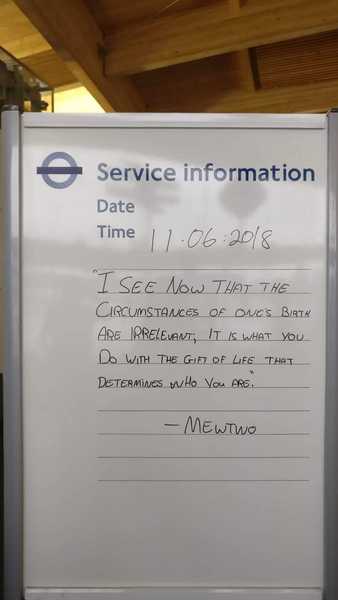 Service information
Date
Time 11.06:2018
"I SEE NOW THAT THE
CIRCUMSTANCES OF ONE'S BIRTH
ARE IRRELEVANT, IT IS WHAT YOU
DO WITH THE GIFT OF LIFE THAT
DETERMINES WHO YOU ARE."
— MEWTWO